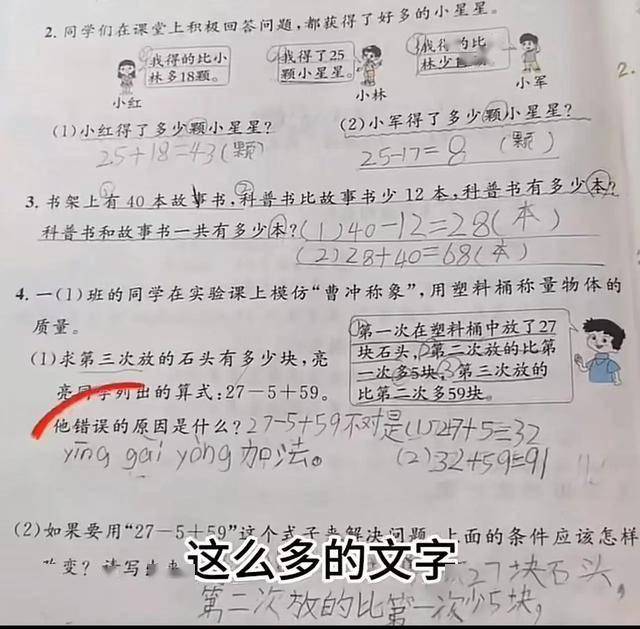 2. 同学们在课堂上积极回答问题,都获得了好多的小星星。
我得的比小林多18颗。
我得了25颗小星星。
我得的比林少
小红
小林
小军
(1)小红得了多少颗小星星?
(2)小军得了多少颗小星星?
25+18=43(颗)
25-17=8 (颗)
2.
3. 书架上有40本故事书,科普书比故事书少12本,科普书有多少本?
科普书和故事书一共有多少本? (1)40-12=28(本)
(2)28+40=68(本)
4. 一(1)班的同学在实验课上模仿“曹冲称象”,用塑料桶称量物体的
质量。
第一次在塑料桶中放了27
块石头,第二次放的比第
一次多5块,第三次放的
比第二次多59块。
(1)求第三次放的石头有多少块,亮
亮同学列出的算式:27-5+59。
他错误的原因是什么? 27-5+59不对是(1)27+5=32
yīng gāi yòng 加法。 (2)32+59=91
(2)如果要用“27-5+59”这个式子来解决问题,上面的条件应该怎样
改变? 请写出来
27块石头,
第二次放的比第一次少5块,
这么多的文字